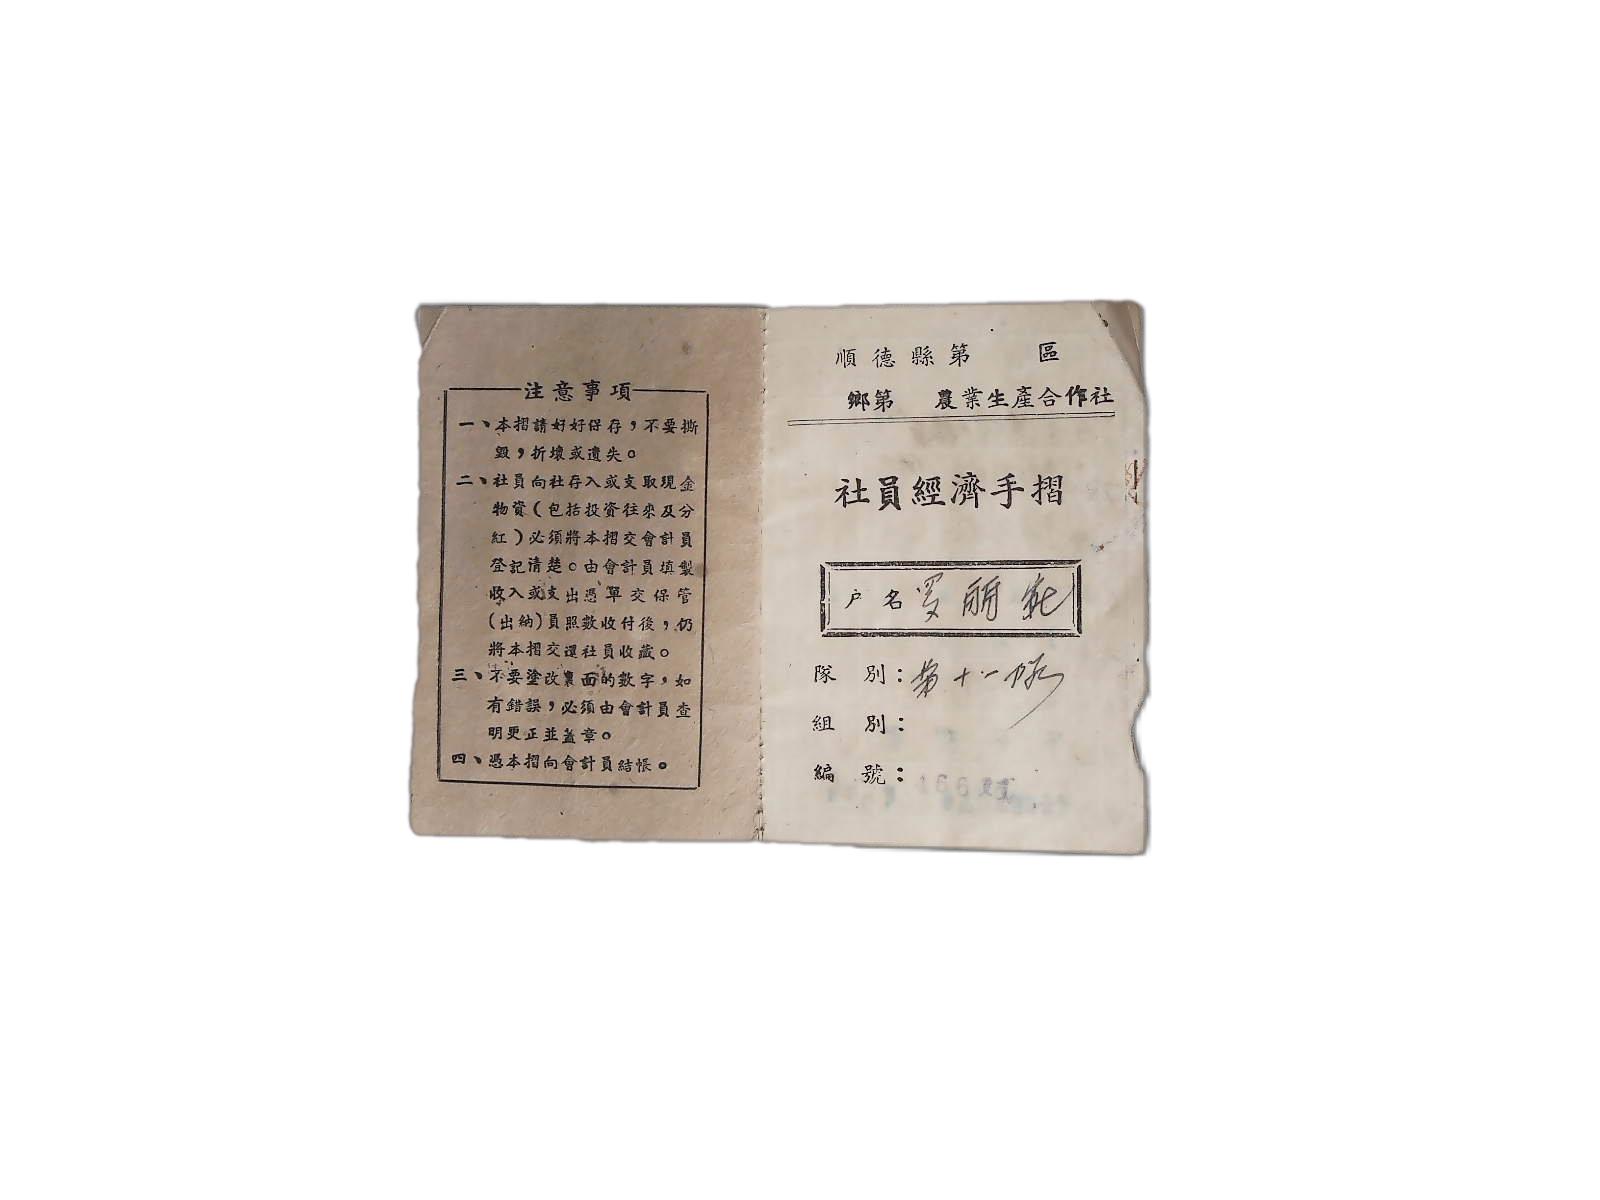 注意事項
一、本摺請好好保存，不要撕
毀，折壞或遺失。
二、社員向社存入或支取現金
物資(包括投資往來及分
紅)必須將本摺交會計員
登記清楚。由會計員填製
收入或支出憑單交保管
(出納)員照數收付後，仍
將本摺交還社員收藏。
三、不要塗改裏面的數字，如
有錯誤，必須由會計員查
明更正並蓋章。
四、憑本摺向會計員結帳。
順德縣第 區
鄉第 農業生產合作社
社員經濟手摺
户名 罗丽
隊 別：第十一队
組 別：
編 號：166